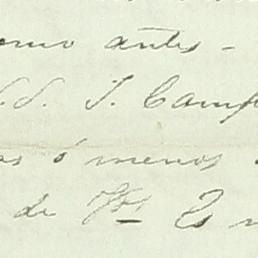 como antes -
S.S. J. Camp
os ó menos
de Vm Es